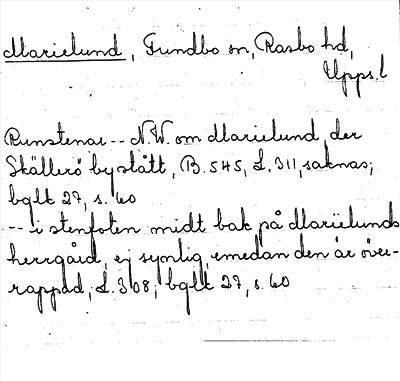 Marielund, Fundbo sn, Rasbo hd,
Upps. l
Runstenar -- N.W. om Marielund, der
Skällerö by stått, B. 545, L. 311, saknas;
bglk 27, s. 60
-- i stenfoten midt bak på Marielunds
herrgård, ej synlig, emedan den är över-
rappad, L. 308; bglk 27, s. 60